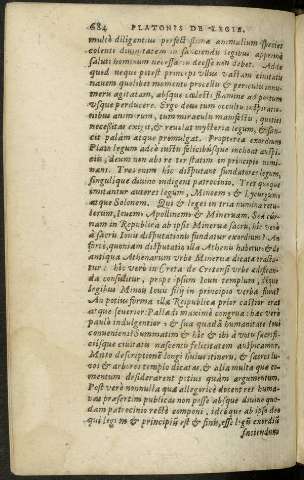 684 PLATONIS DE LEGIB.
multo diligentius perfectissima animalium species
colenti diuinitatem in sanciendis legibus, apprime
saluti hominum necessaria deesse non debet. Adde
quod neque potest princeps vllus vastam ciuitatis
nauem quolibet momento procellis & periculis innu-
meris agitatam, absque cælesti flamine ad portum
vsque perducere. Ergo deus tum occultis inspiratio-
nibus animorum, tum miraculis manifestis, quoties
necessitas exigit, & reuelat mysteria legum, & san-
cit palàm atque promulgat. Propterea exordium
Plato legum adeò iustis felicibusque inchoat auspi-
ciis, deum non ab re ter statim in principio nomi-
nans. Tres enim hic disputant fundatores legum,
singulique diuino indigent patrocinio. Tres quoque
imitantur autores legum, Minoem & Lycurgum
atque Solonem. Qui & leges in tria numina retu-
lerunt, Iouem, Apollinem & Mineruam. Sed cur-
nam in Republica ab ipsis Mineruæ sacris, hic verò
à sacris Iouis disputationis fundatur exordium? An
fortè, quoniam disputatio illa Athenis habetur: & de
antiqua Athenarum vrbe Mineruæ dicata tracta-
tur: hic verò in Creta de Cretensi vrbe ædifican-
da consulitur, prope ipsum Iouis templum, deque
legibus Minois Iouis filij in principio verba fiunt?
An potius forma illa Reipublicæ prior castior erat
atque seuerior: Palladi maximè congrua: hæc verò
paulò indulgentior, & sua quadam humanitate Ioui
conuenient? Summatim & hic & ibi à votis sacrifi-
ciisque ciuitati nascenti felicitatem auspicamur.
Mitto descriptionem longi huius itineris, & sacros lu-
cos & arbores templo dicatas, & alia multa quæ com-
mentum desiderarent potius quàm argumentum.
Post verò nonnulla quasi allegoricè docent res huma-
nas præsertim publicas non posse absque diuino quo-
dam patrocinio rectè componi, ideóque ab ipso deo
qui legum & principium est & finis, esse legum exordium
faciendum